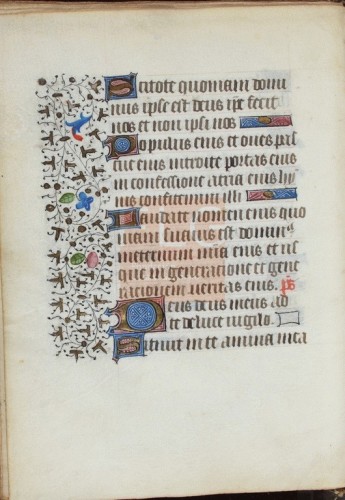 Scitote quoniam domi
nus ipse est deus ipe fecit
nos et non ipsi nos
Populus eius et oues pas
cue eius introite portas eius
in confessione atria eius hy
nis confitemini illi
Laudate nomen eius quo
niam suauis est dominus
in eternum mia eius et us
que in generatione et gene
rationem ueritas eius. ps
Deus deus meus ad
te de luce uigilo.
Sitiuit in te anima mea